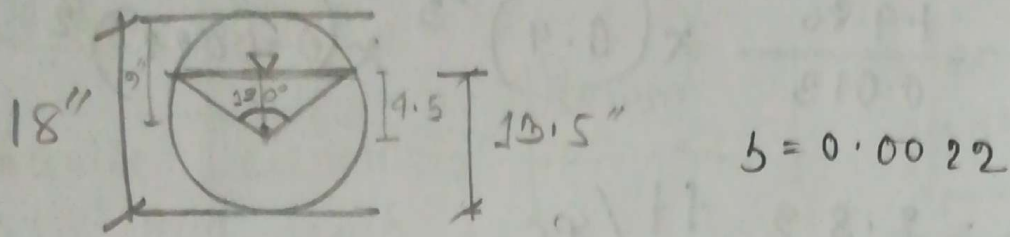 18"
9"
120°
4.5
13.5"
s = 0.0022